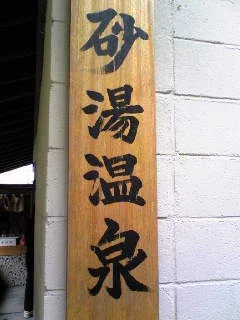 砂湯温泉